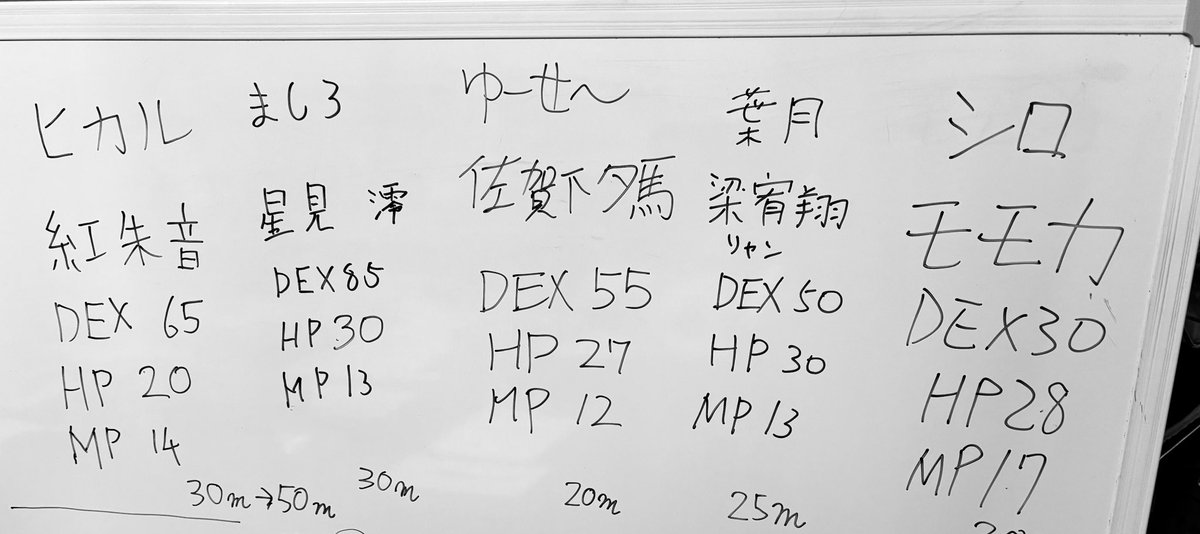 ヒカル
紅朱音
DEX 65
HP 20
MP 14
30m→50m
ましろ
星見 澪
DEX85
HP30
MP13
30m
ゆーせ〜
佐賀下夕馬
DEX 55
HP 27
MP 12
20m
葉月
梁宥翔
リャン
DEX 50
HP 30
MP 13
25m
シロ
モモカ
DEX30
HP28
MP17